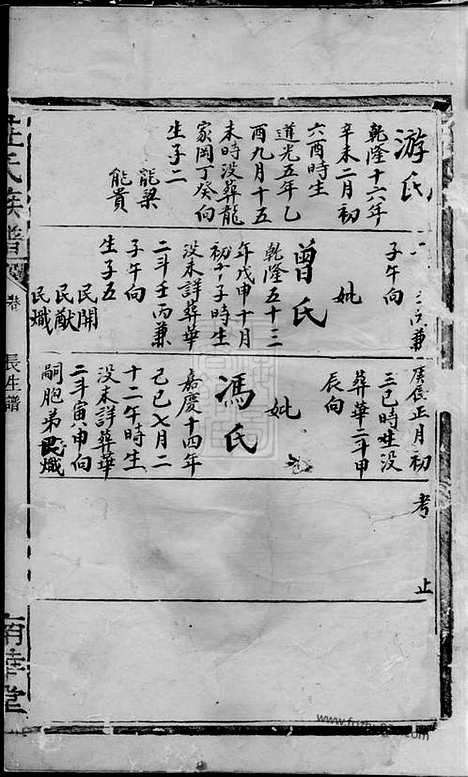 游氏
乾隆十六年
辛未二月初
六酉時生
道光五年乙
酉九月十五
未時没葬龍
家岡丁癸向
生子二
能梁
能貴
子午向
妣
曾氏
乾隆五十三
年戊申十月
初十子時生
没未詳葬華
二斗壬丙兼
子午向
生子五
民開
民猷
民熾
正月初
三巳時生没
葬華二斗甲
辰向
妣
馮氏
嘉慶十四年
己巳七月二
十二午時生
没未詳葬華
二斗寅申向
嗣胞弟民熾
考
止
氏族譜
卷
長生譜
堂